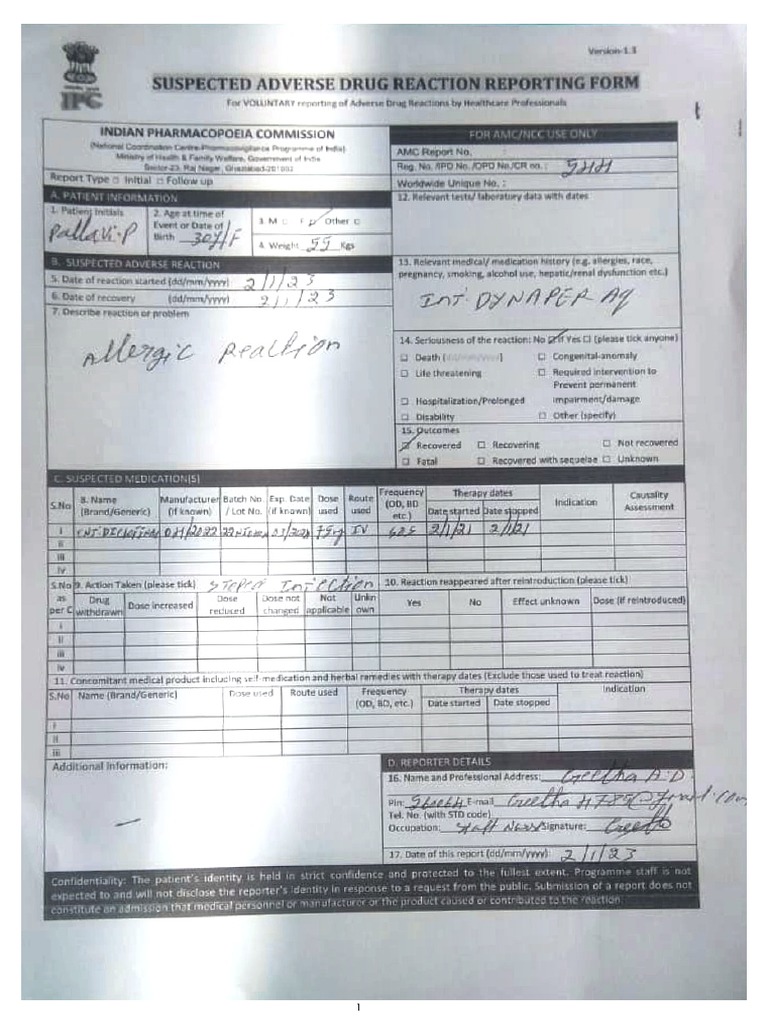 Version-1.3
IPC
SUSPECTED ADVERSE DRUG REACTION REPORTING FORM
For VOLUNTARY reporting of Adverse Drug Reactions by Healthcare Professionals
INDIAN PHARMACOPOEIA COMMISSION
(National Coordination Centre-Pharmacovigilance Programme of India)
Ministry of Health & Family Welfare, Government of India
Sector-23, Raj Nagar, Ghaziabad-201002
Report Type □ Initial □ Follow up
FOR AMC/NCC USE ONLY
AMC Report No. :
Reg. No. /IPD No. /OPD No./CR no. :
Worldwide Unique No. :
A. PATIENT INFORMATION
1. Patient Initials
Pallavi.P
2. Age at time of Event or Date of Birth 30y/F
3. M □ F Other □
4. Weight 55 Kgs
12. Relevant tests/ laboratory data with dates
B. SUSPECTED ADVERSE REACTION
5. Date of reaction started (dd/mm/yyyy) 2/1/23
6. Date of recovery (dd/mm/yyyy) 2/1/23
7. Describe reaction or problem
Allergic Reaction
13. Relevant medical/ medication history (e.g. allergies, race,
pregnancy, smoking, alcohol use, hepatic/renal dysfunction etc.)
INT. DYNAPER AQ
14. Seriousness of the reaction: No ☑ If Yes □ (please tick anyone)
□ Death (dd/mm/yyyy) □ Congenital-anomaly
□ Life threatening □ Required intervention to
Prevent permanent
□ Hospitalization/Prolonged impairment/damage
□ Disability □ Other (specify)
15. Outcomes
☑ Recovered □ Recovering □ Not recovered
□ Fatal □ Recovered with sequelae □ Unknown
C. SUSPECTED MEDICATION(S)
S.No 8. Name (Brand/Generic) Manufacturer (if known) Batch No. / Lot No. Exp. Date (if known) Dose used Route used Frequency (OD, BD etc.) Therapy dates Date started Date stopped Indication Causality Assessment
i 04/2022 IV 2/1/21 2/1/21
ii
iii
iv
S.No as per C 9. Action Taken (please tick) Stoped Intection 10. Reaction reappeared after reintroduction (please tick)
Drug withdrawn Dose increased Dose reduced Dose not changed Not applicable Unkn own Yes No Effect unknown Dose (if reintroduced)
i
ii
iii
iv
11. Concomitant medical product including self-medication and herbal remedies with therapy dates (Exclude those used to treat reaction)
S.No Name (Brand/Generic) Dose used Route used Frequency (OD, BD, etc.) Therapy dates Date started Date stopped Indication
i
ii
iii
Additional Information:
D. REPORTER DETAILS
16. Name and Professional Address: Geetha A.D
Pin: E-mail
Tel. No. (with STD code)
Occupation: Staff Signature: Geetha
17. Date of this report (dd/mm/yyyy): 2/1/23
Confidentiality: The patient's identity is held in strict confidence and protected to the fullest extent. Programme staff is not
expected to and will not disclose the reporter's identity in response to a request from the public. Submission of a report does not
constitute an admission that medical personnel or manufacturer or the product caused or contributed to the reaction.
1